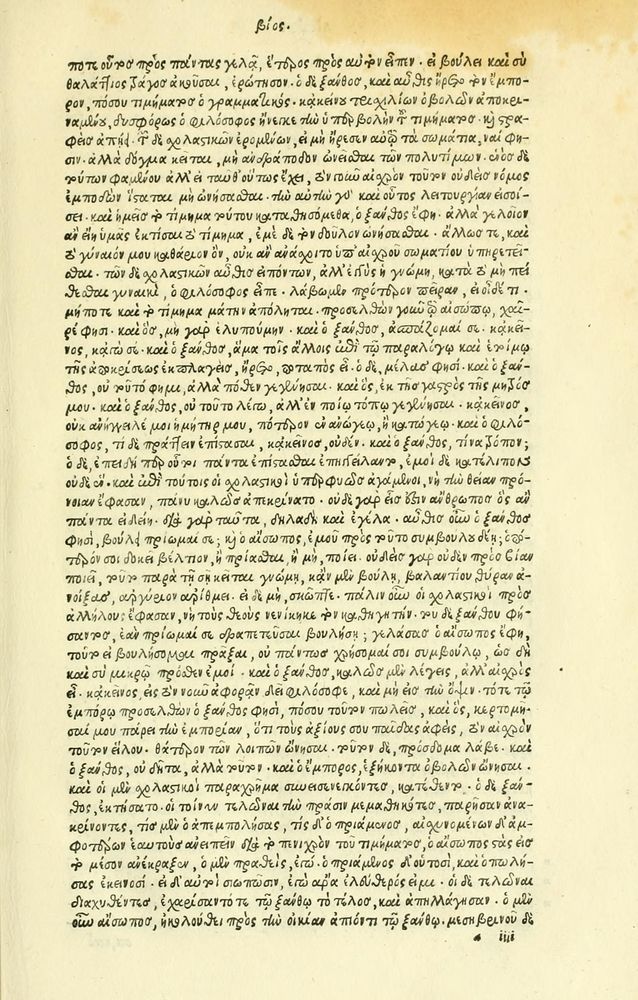 βίος.
ποτε οὗτος πρὸς πάντας γελᾷ, ἕτερος πρὸς αὐτὸν εἶπεν· εἰ βούλει καὶ σὺ
θαλάττιος τράγος ἀκοῦσαι, ἐρώτησον· ὁ δὲ ξάνθος, καὶ αὖθις ἤρετο τὸν ἔμπο-
ρον, πόσου τιμήματος ὁ γραμματικός· κἀκείνου τρισχιλίων ὀβολῶν ἀποκρι-
ναμένου, δυσφόρως ὁ φιλόσοφος ἤνεγκε τὴν ὑπερβολὴν τοῦ τιμήματος· καὶ στρα-
φεὶς ἀπῄει· τῶν δὲ σχολαστικῶν ἐρομένων, εἰ μὴ ἤρεσεν αὐτῷ τὰ σωμάτια, ναὶ φη-
σιν· ἀλλὰ δόγμα κεῖται, μὴ ἀνδράποδον ὠνεῖσθαι τῶν πολυτίμων· ἑνὸς δὲ
τούτων φαμένου ἀλλ' εἰ ταῦθ' οὕτως ἔχει, τόν γε μὴν αἰσχρὸν τοῦτον οὐδεὶς νόμος
ἐμποδὼν ἵσταται μὴ ὠνήσασθαι· τὴν αὐτὴν γὰρ καὶ οὗτος λειτουργίαν εἰσοί-
σει· καὶ ἡμεῖς τὸ τίμημα τούτου καταθησόμεθα, ὁ ξάνθος ἔφη· ἀλλὰ γελοῖον
ἂν εἴη ὑμᾶς ἐκτῖσαι τὸ τίμημα, ἐμὲ δὲ τὸν δοῦλον ὠνήσασθαι· ἄλλως τε, καὶ
τὸ γύναιόν μου καθάριον ὂν, οὐκ ἂν ἀνάσχοιτο ὑπὸ αἰσχροῦ σωματίου ὑπηρετεῖ-
σθαι· τῶν δὲ σχολαστικῶν αὖθις εἰπόντων, ἀλλ' ἐγγὺς ἡ γνώμη, κατὰ τὸ μὴ πεί
θεσθαι γυναικὶ, ὁ φιλόσοφος εἶπε· λάβωμεν πρότερον πεῖραν, εἰ οἶδέ τι·
μήποτε καὶ τὸ τίμημα μάτην ἀπόληται· προσελθὼν γοῦν τῷ αἰσώπῳ, χαῖ-
ρέ φησι· καὶ ὃς, μὴ γὰρ ἐλυπούμην· καὶ ὁ ξάνθος, ἀσπάζομαί σε· κἀκεῖ-
νος, κἀγώ σε· καὶ ὁ ξάνθος, ἅμα τοῖς ἄλλοις ἐπὶ τῷ παραλόγῳ καὶ ἑτοίμῳ
τῆς ἀποκρίσεως ἐκπλαγεὶς, ἤρετο, ποταπὸς εἶ· ὁ δὲ, μέλας φησί· καὶ ὁ ξάν-
θος, οὐ τοῦτό φημι, ἀλλὰ πόθεν γεγέννησαι· καὶ ὃς, ἐκ τῆς γαστρὸς τῆς μητρός
μου· καὶ ὁ ξάνθος, οὐ τοῦτο λέγω, ἀλλ' ἐν ποίῳ τόπῳ γεγέννησαι· κἀκεῖνος,
οὐκ ἀνήγγειλέ μοι ἡ μήτηρ μου, πότερον ἐν ἀνώγεῳ, ἢ κατώγεῳ· καὶ ὁ φιλό-
σοφος, τί δὲ πράττειν ἐπίστασαι, κἀκεῖνος, οὐδέν· καὶ ὁ ξάνθος, τίνα τρόπον;
ὁ δὲ, ἐπειδήπερ οὗτοι πάντα ἐπίστασθαι ἐπηγγείλαντο, ἐμοὶ δὲ κατέλιπον
οὐδέν· καὶ ἐπὶ τούτοις οἱ σχολαστικοὶ ὑπερφυῶς ἀγάμενοι, νὴ τὴν θείαν πρό-
νοιαν ἔφασαν, πάνυ καλῶς ἀπεκρίνατο· οὐδὲ γὰρ εἷς ἐστιν ἄνθρωπος ὃς ἂν
πάντα εἰδείη· διὰ γὰρ ταῦτα, δηλαδὴ καὶ ἐγέλα· αὖθις οὖν ὁ ξάνθος
φησὶ, βούλει πρίωμαί σε; καὶ ὁ αἴσωπος, ἐμοῦ πρὸς τοῦτο συμβούλου δέῃ; ὁπό-
τερόν σοι δοκεῖ βέλτιον, ἢ πρίασθαι, ἢ μή, ποίει· οὐδεὶς γὰρ οὐδὲν πρὸς βίαν
ποιεῖ, τοῦτο παρὰ τῇ σῇ κεῖται γνώμῃ, κἂν μὲν βουλῇ, βαλαντίου θύραν ἀ-
νοίξας, ἀργύριον ἀρίθμει· εἰ δὲ μὴ, σκῶπτε· πάλιν οὖν οἱ σχολαστικοὶ πρὸς
ἀλλήλους ἔφασαν, νὴ τοὺς θεοὺς νενίκηκε τὸν καθηγητήν· τοῦ δὲ ξάνθου φή-
σαντος, ἐὰν πρίωμαί σε δραπετεῦσαι βουλήσῃ; γελάσας ὁ αἴσωπος ἔφη,
τοῦτο εἰ βουλήσομαι πρᾶξαι, οὐ πάντως χρήσομαί σοι συμβούλῳ, ὡς δὴ
καὶ σὺ μικρῷ πρόσθεν ἐμοί· καὶ ὁ ξάνθος, καλῶς μὲν λέγεις, ἀλλ' αἰσχρὸς
εἶ· κἀκεῖνος, εἰς τὸν νοῦν ἀφορᾶν δεῖ φιλόσοφε, καὶ μὴ εἰς τὴν ὄψιν· τότε τῷ
ἐμπόρῳ προσελθὼν ὁ ξάνθος φησὶ, πόσου τοῦτον πωλεῖς· καὶ ὃς, κερτομῆ-
σαί μου πάρει τὴν ἐμπορίαν, ὅτι τοὺς ἀξίους σου παῖδας ἀφεὶς, τὸν αἰσχρὸν
τοῦτον εἵλου· θάτερον τῶν λοιπῶν ὤνησαι· τοῦτον δὲ, πρόσδομα λάβε· καὶ
ὁ ξάνθος, οὐ δῆτα, ἀλλὰ τοῦτον· καὶ ὁ ἔμπορος, ἑξήκοντα ὀβολῶν ὤνησαι·
καὶ οἱ μὲν σχολαστικοὶ παραχρῆμα συνεισενεγκόντες, κατέθεντο· ὁ δὲ ξάν-
θος, ἐκτήσατο· οἱ τοίνυν τελῶναι τὴν πρᾶσιν μεμαθηκότες, παρῆσαν ἀνα-
κρίνοντες, τίς μὲν ὁ ἀπεμπολήσας, τίς δ' ὁ πριάμενος, αἰσχυνομένων δ' ἀμ-
φοτέρων ἑαυτοὺς ἀνειπεῖν διὰ τὸ πενιχρὸν τοῦ τιμήματος, ὁ αἴσωπος στὰς εἰς
τὸ μέσον ἀνέκραξεν, ὁ μὲν πραθεὶς, ἐγώ· ὁ πριάμενος δ' οὑτοσὶ, καὶ ὁ πωλή-
σας ἐκεινοσί· εἰ δ' αὐτοὶ σιωπῶσιν, ἐγὼ ἄρα ἐλεύθερός εἰμι· οἱ δὲ τελῶναι
διαχυθέντες, ἐχαρίσαντό τε τῷ ξάνθῳ τὸ τέλος, καὶ ἀπηλλάγησαν· ὁ μὲν
οὖν αἴσωπος, ἠκολούθει πρὸς τὴν οἰκίαν ἀπιόντι τῷ ξάνθῳ· μεσημβρινοῦ δὲ
iiii